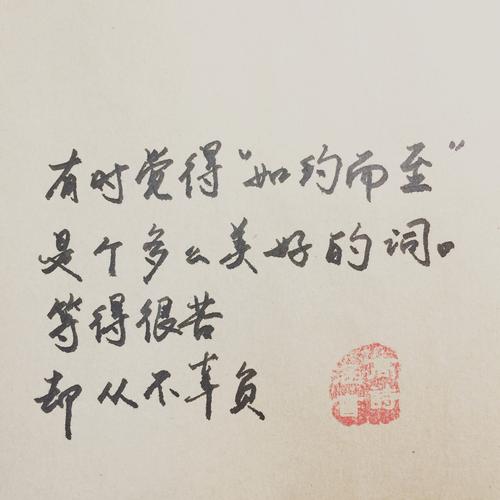 有时觉得“如约而至”
是个多么美好的词。
等得很苦
却从不辜负